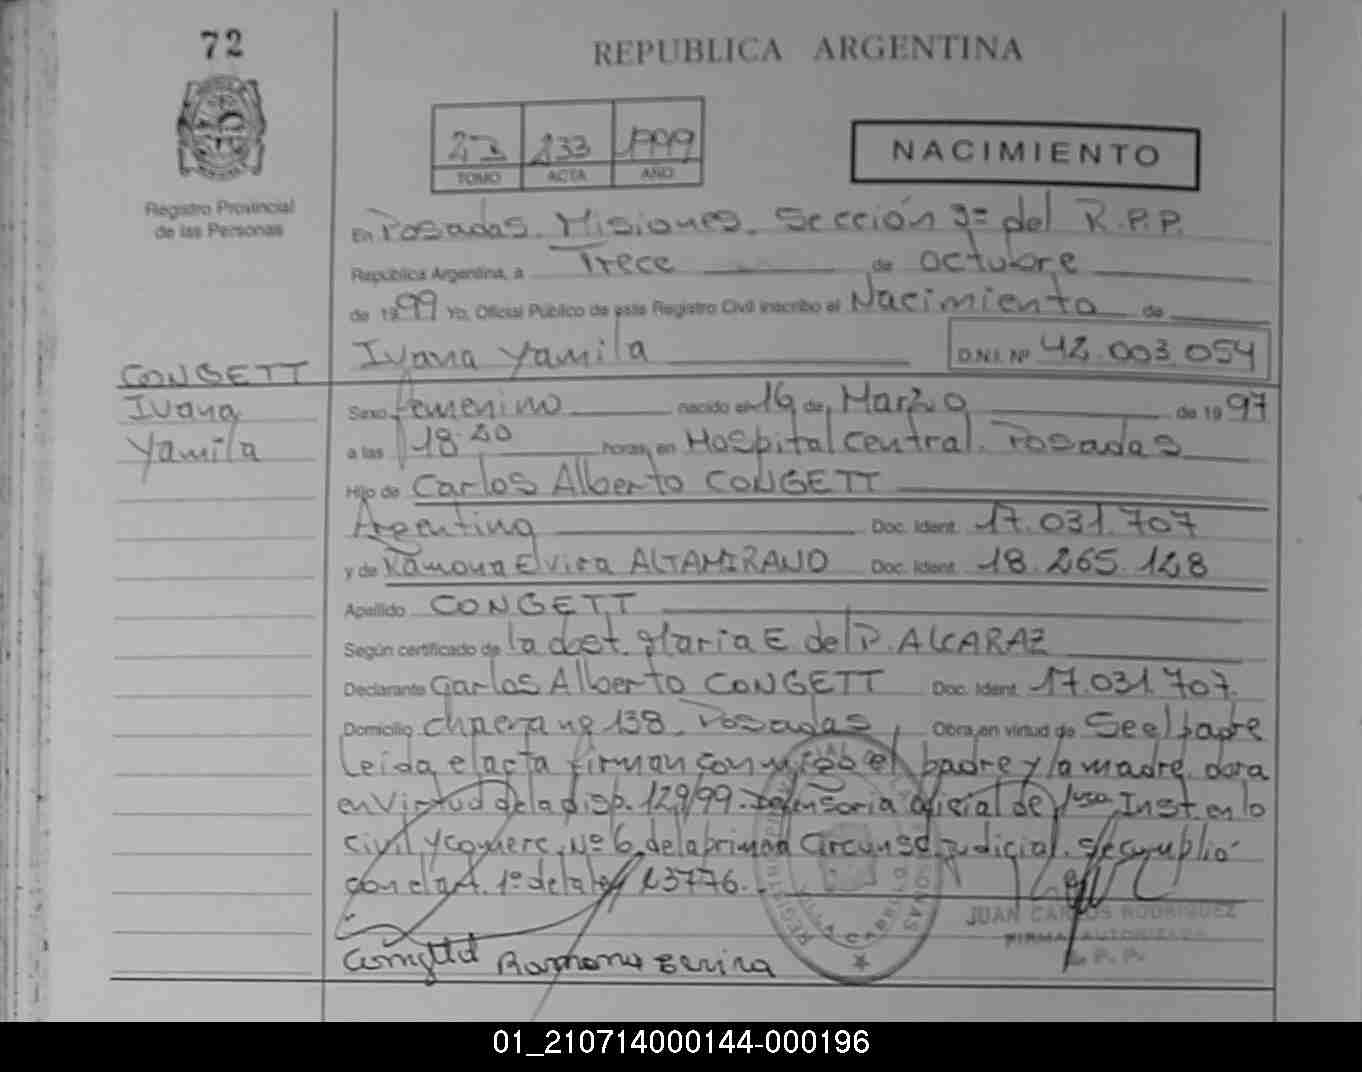 72
REPUBLICA ARGENTINA
233 1999
TOMO ACTA AÑO
NACIMIENTO
Registro Provincial
de las Personas
En Posadas. Misiones. Sección 3ª del R.P.P.
República Argentina, a Trece de octubre
de 1999 Yo, Oficial Público de este Registro Civil inscribo el Nacimiento de
Ivana Yamila D.N.I. Nº 42.003.054
CONGETT
Ivana
Yamila
Sexo femenino nacido el 16 de Marzo de 1997
a las 18.20 horas, en Hospital Central. Posadas
Hijo de Carlos Alberto CONGETT
Argentino Doc. Ident. 17.031.707
y de Ramona Elvira ALTAMIRANO Doc. Ident. 18.265.128
Apellido CONGETT
Según certificado de la obst. Maria E del P. ALCARAZ
Declarante Carlos Alberto CONGETT Doc. Ident. 17.031.707.
Domicilio 138. Posadas Obra en virtud de Ser el padre
Leida el acta firman conmigo el padre y la madre. obra
en Virtud de la disp. 129/99. Defensoria oficial de 1ra Inst. en lo
Civil y Comerc. Nº 6 de la primera Circunsc. judicial. Se cumplió
con el art. 1º de la ley 23776.
JUAN CARLOS RODRIGUEZ
FIRMA AUTORIZADA
R. P. P.
Congett Ramona Elvira
VILLA CABELLO
01_210714000144-000196